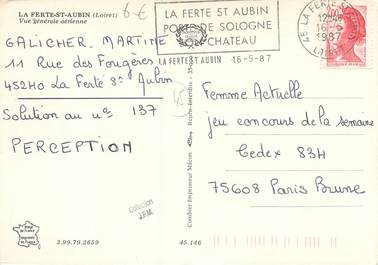 LA FERTE-ST-AUBIN (Loiret)
Vue générale aérienne
6€
LA FERTE ST AUBIN
PORTE DE SOLOGNE
SON CHATEAU
LA FERTE ST AUBIN 16-5-87
45 LA FERTE ST
1987
LOIRET
GALICHER. MARTINE
11 Rue des Fougères
45240 La Ferté St Aubin
Solution au n° 137
PERCEPTION
Combier Imprimeur Mâcon
Femme Actuelle
jeu concours de la semaine
Cedex 83H
75608 Paris Brune
Collection
J.F.M.
3.99.79.2659
45.146